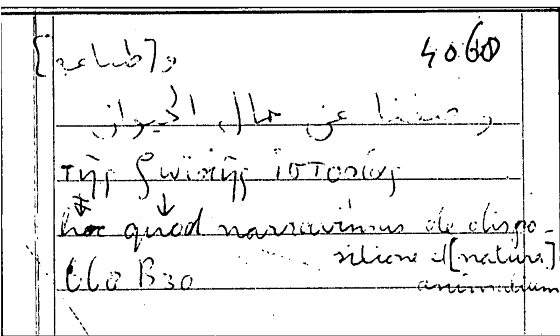 [وطباعه] 4060
وصفنا عن حال الحيوان
τῆς ζωϊκῆς ἱστορίας
hoc quod narravimus de dispo-
sitione et [natura]
660 B30 animalium